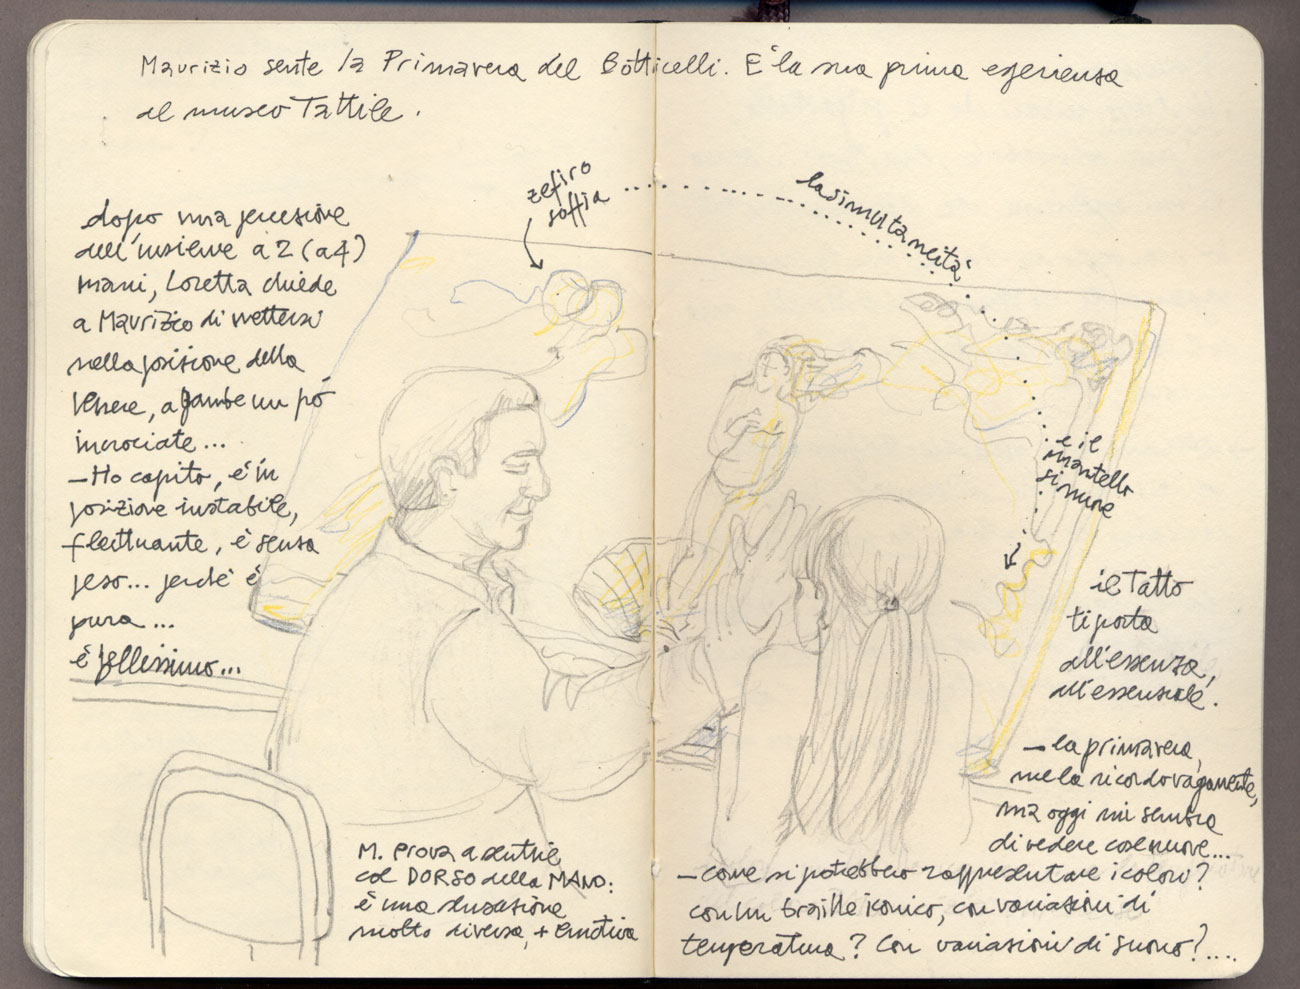 Maurizio sente la Primavera del Botticelli. E' la sua prima esperienza
al museo Tattile.
zefiro
soffia
la simultaneità
dopo una percezione
dell'insieme a 2 (a 4)
mani, Loretta chiede
a Maurizio di mettersi
nella posizione della
Venere, a gambe un pò
incrociate...
- Ho capito, è in
posizione instabile,
fluttuante, è senza
peso... perché è
pura...
è bellissimo...
e il
mantello
si muove
il Tatto
ti porta
all'essenza,
all'essenziale.
- la primavera,
me la ricordo vagamente,
ma oggi mi sembra
di vedere cose nuove...
M. prova a sentire
col DORSO della MANO:
è una sensazione
molto diversa, + emotiva
- come si potrebbero rappresentare i colori?
con un braille iconico, con variazioni di
temperatura? Con variazioni di suono?....